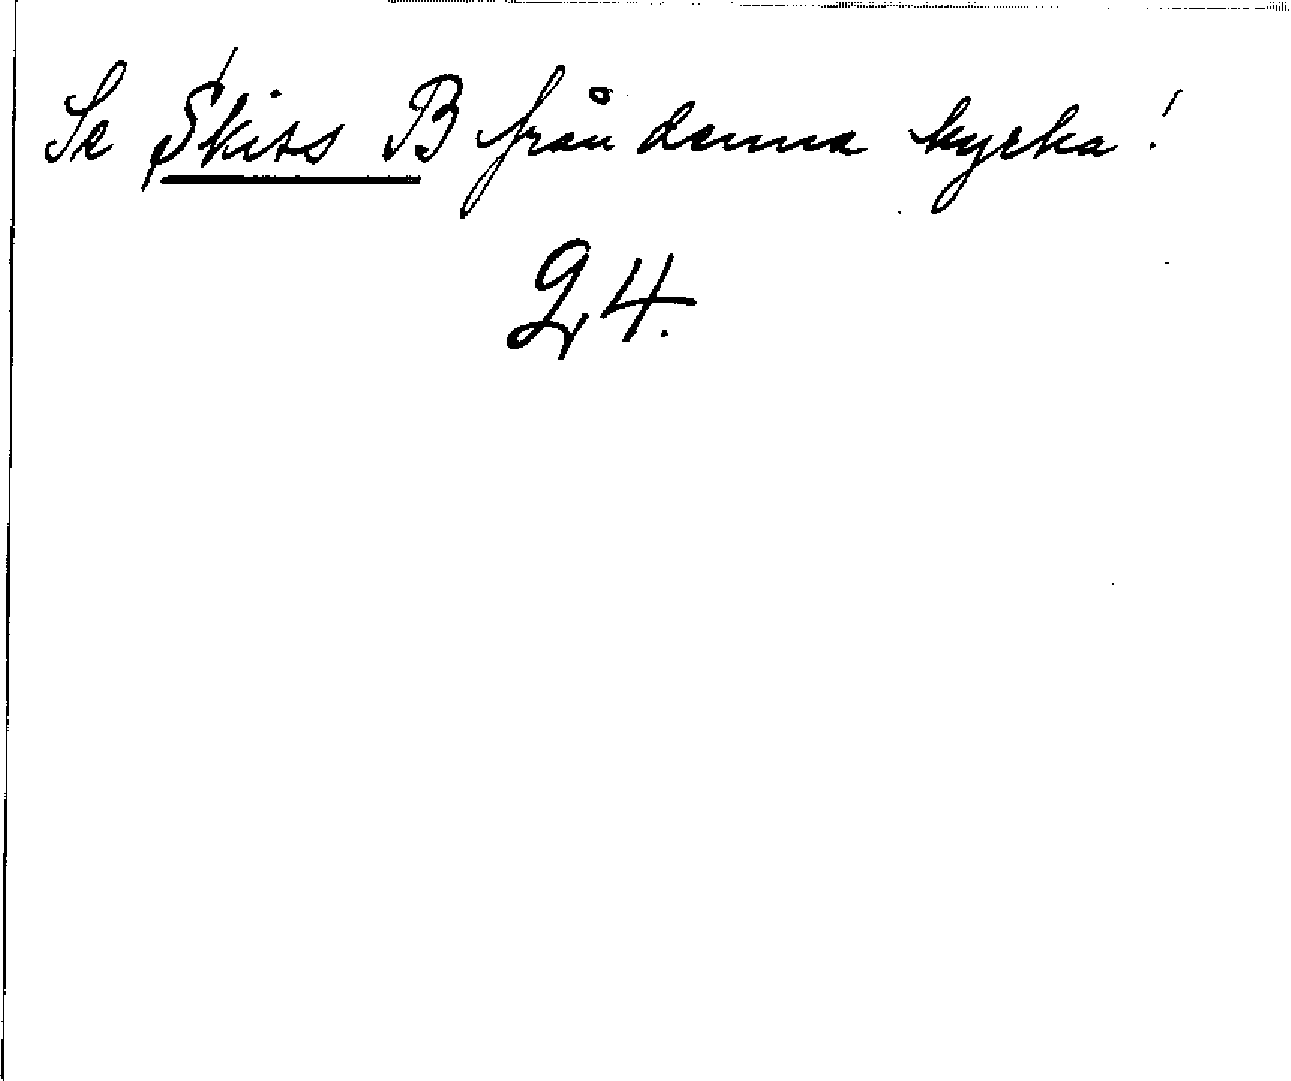 Se Skiss B från denna kyrka!
24.